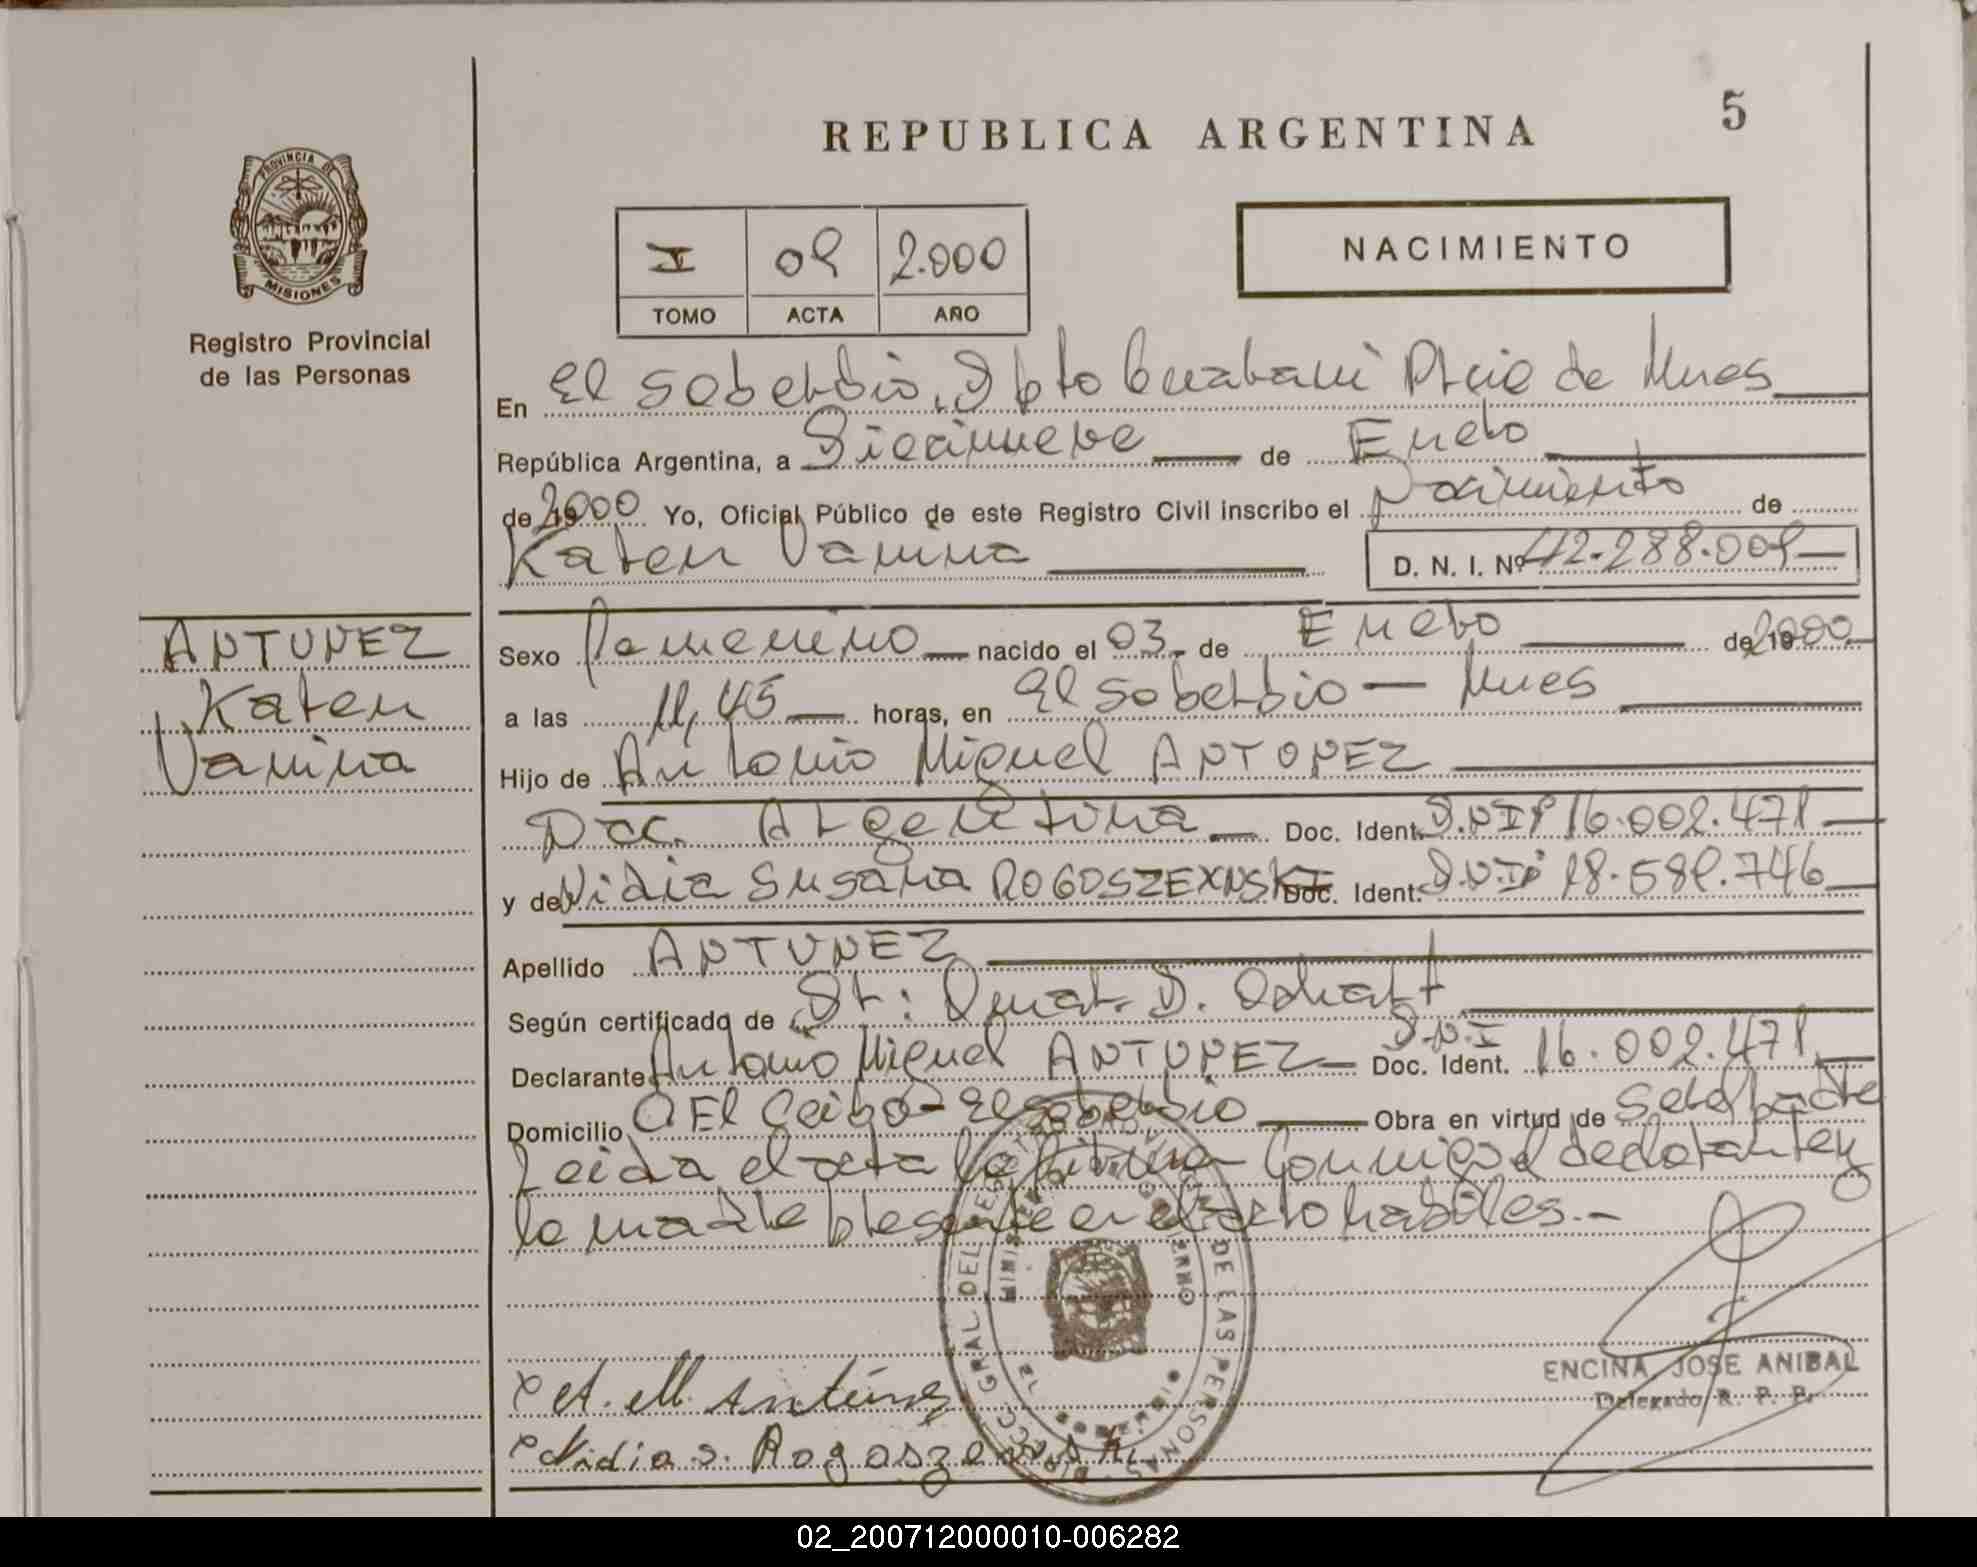 5
REPUBLICA ARGENTINA
PROVINCIA DE
MISIONES
Registro Provincial
de las Personas
I 09 2.000
TOMO ACTA AÑO
NACIMIENTO
En El Soberbio, Dpto Guarani Pcia de Mnes
República Argentina, a Diecinueve de Enero
de 19 2000 Yo, Oficial Público de este Registro Civil inscribo el Nacimiento de
Karen Vanina D. N. I. Nº 42.288.009
ANTUNEZ
Karen
Vanina
Sexo Femenino nacido el 03 de Enero de 19 2000
a las 11,45 horas, en El Soberbio - Mnes
Hijo de Antonio Miguel ANTUNEZ
Nac. Argentina Doc. Ident. D.N.I. 16.002.471
y de Nidia Susana Doc. Ident. D.N.I. 18.589.746
Apellido ANTUNEZ
Según certificado de Dr: Omar D.
Declarante Antonio Miguel ANTUNEZ Doc. Ident. D.N.I 16.002.471
Domicilio El Ceibo - El Soberbio Obra en virtud de Ser el padre
Leida el acta la firman conmigo el declarante y
la madre presente en el acto habiles.-
A. M. Antúnez
Nidia S.
DIRECC. GRAL DEL REGISTRO DE LAS PERSONAS
ENCINA JOSE ANIBAL
Delegado R. P. P.
02_200712000010-006282